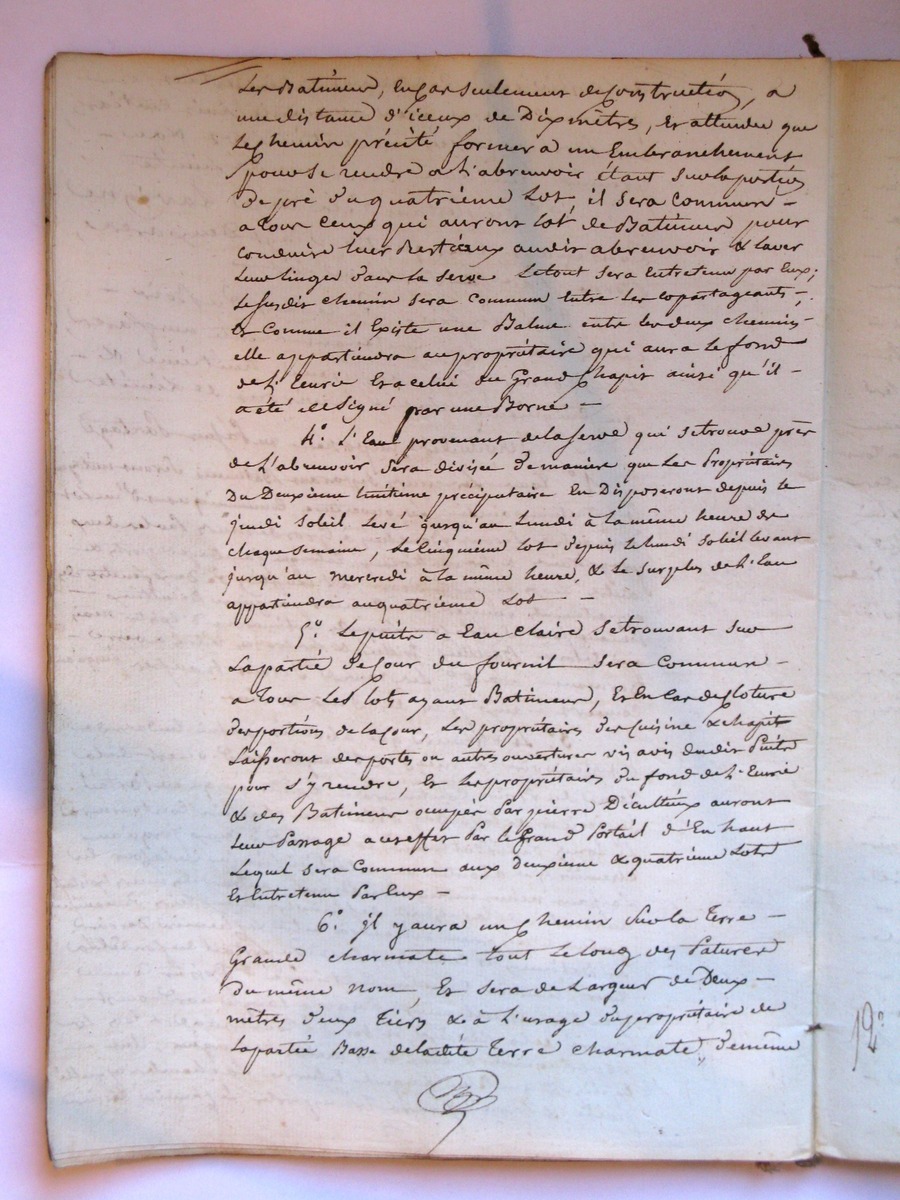 Les Batimens, En Cas seulement de Construction, a
une distance d'iceux de Dix mètres, Et attendu que
Le Chemin précité formera un Embranchement
pour Se rendre a L'abreuvoir étant Sur la portion
De pré du quatrième Lot, il sera commun –
a tous ceux qui auront lot de Batimens pour
conduire leurs Bestiaux audit abreuvoir & laver
Leur linge dans la serve Le tout sera Entretenu par Eux;
Le susdit chemin sera commun Entre Les copartageants –;
Et Comme il Existe une Balme entre les deux chemins
elle appartiendra au propriétaire qui aura le fond
de L'Ecurie Et a celui du Grand Chapit ainsi qu'il –
a été désigné par une Borne –
4.° L'Eau provenant de la serve qui se trouve près
de L'abreuvoir sera divisée de manière que Les Propriétaires
Du Deuxieme huitième préciputaire En Disposeront depuis le
jeudi Soleil Levé jusqu'au Lundi à la même heure de
chaque semaine, Le Cinquième lot depuis le lundi Soleil levant
jusqu'au mercredi à la même heure, & le surplus de L'Eau
appartiendra au quatrième Lot –
5.° Le puits a Eau claire se trouvant Sur
La partie de Cour du fournil sera commun –
a tous Les lots ayant Batimens, Et En Cas de Cloture
des portions de la Cour, Les propriétaires des Cuisine & chapit
Laisseront des portes ou autres ouvertures vis avis dudit Puits
pour s'y rendre, Et Les propriétaires du fond de L'Ecurie
& des Batimens occupés Par pierre Décultieux auront
Leur Passage a cet effet Par le Grand Portail d'En haut
Lequel sera Commun aux Deuxième & quatrième Lots
Et Entretenu Par Eux –
6.° il y aura un Chemin Sur la Terre –
Grande charmate tout Le long des Patures
du même nom, Et sera de Largeur de Deux –
mètres deux Tiers & à L'usage du propriétaire de
La partie Basse de ladite Terre charmate, de même
12°